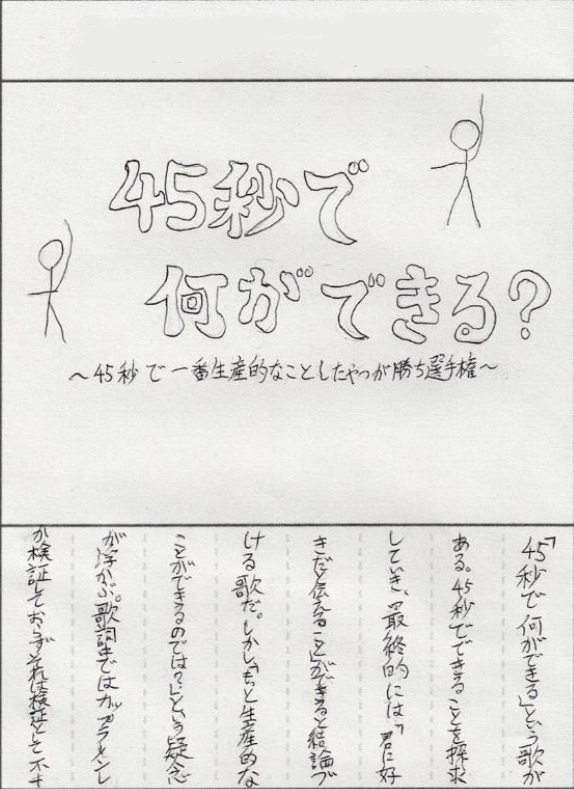 45秒で
何ができる?
~45秒で一番生産的なことしたやつが勝ち選手権~
「45秒で何ができる」という歌が
ある。45秒でできることを探求
していき、最終的には「君に好
きだと伝えること」ができると結論づ
ける歌だ。しかし、もっと生産的な
ことができるのでは?という疑念
が浮かぶ。歌詞ではカップラーメンし
か検証しておらずそれは検証として不十